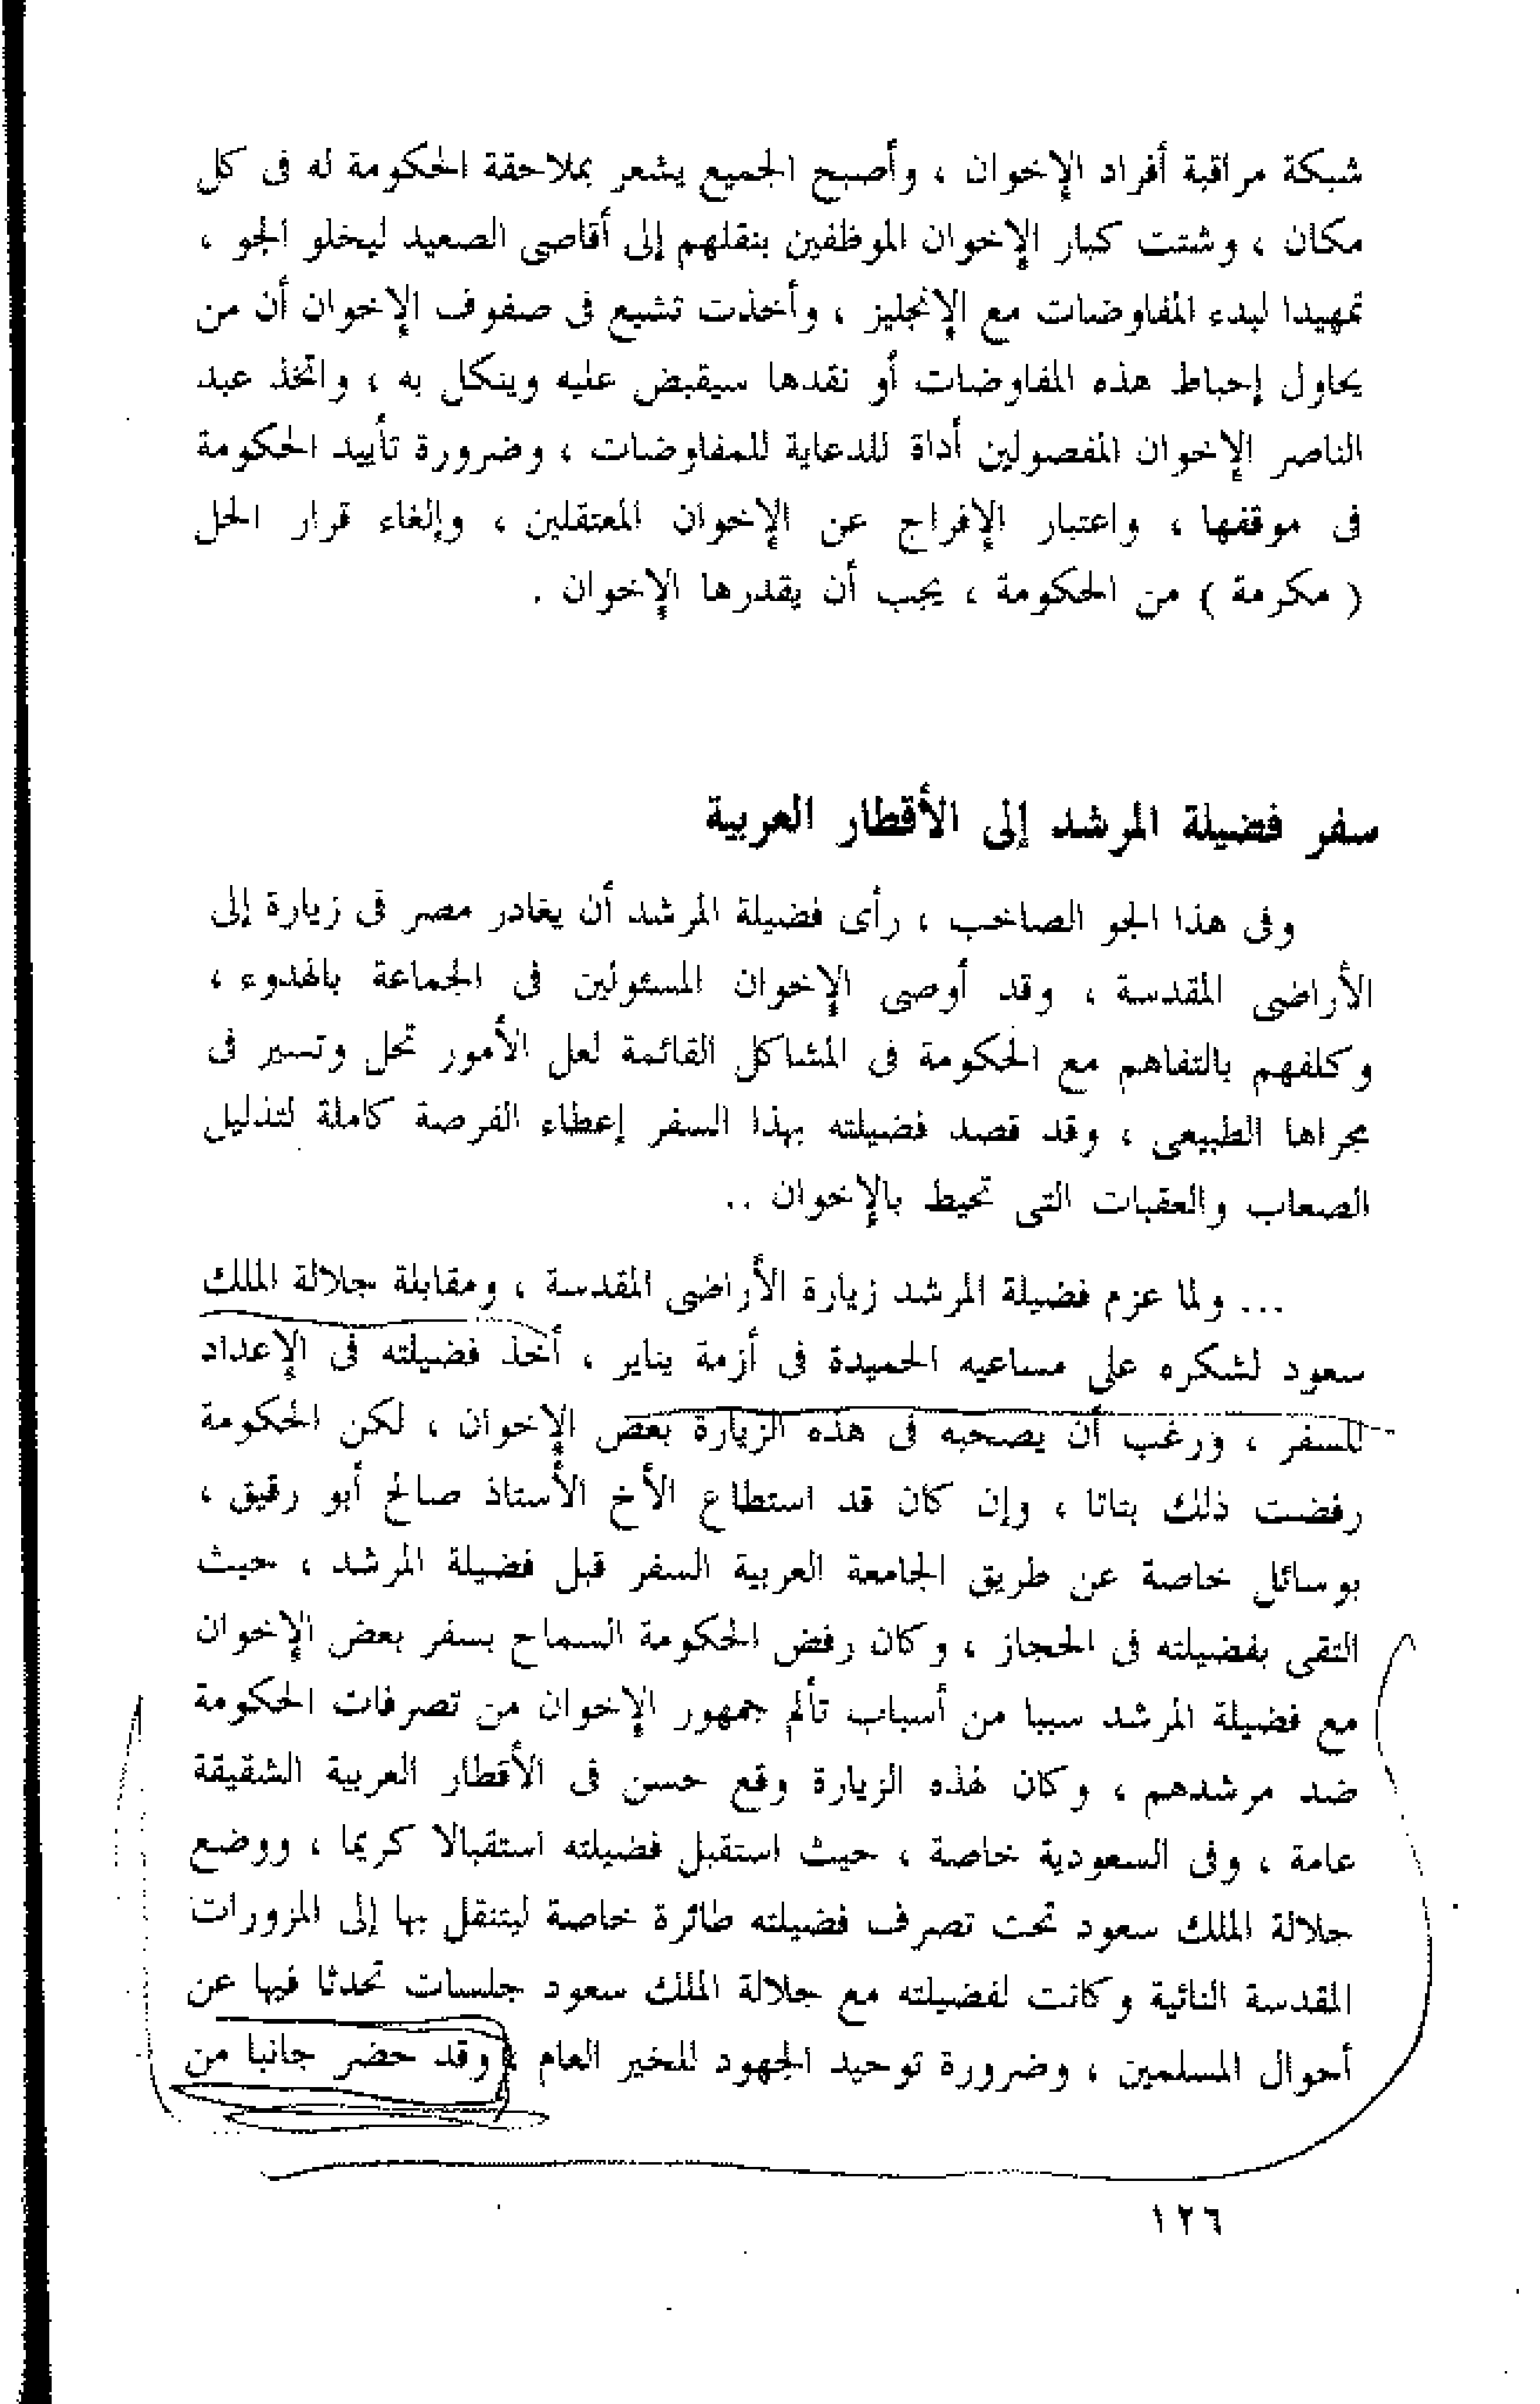 شبكة مراقبة أفراد الإخوان ، وأصبح الجميع يشعر بملاحقة الحكومة له فى كل
مكان ، وشتت كبار الإخوان الموظفين بنقلهم إلى أقاصى الصعيد ليخلو الجو ،
تمهيدا لبدء المفاوضات مع الإنجليز ، وأخذت تشيع فى صفوف الإخوان أن من
يحاول إحباط هذه المفاوضات أو نقدها سيقبض عليه وينكل به ، واتخذ عبد
الناصر الإخوان المفصولين أداة للدعاية للمفاوضات ، وضرورة تأييد الحكومة
فى موقفها ، واعتبار الإفراج عن الإخوان المعتقلين ، وإلغاء قرار الحل
( مكرمة ) من الحكومة ، يجب أن يقدرها الإخوان .
سفر فضيلة المرشد إلى الأقطار العربية
وفى هذا الجو الصاخب ، رأى فضيلة المرشد أن يغادر مصر فى زيارة إلى
الأراضى المقدسة ، وقد أوصى الإخوان المسئولين فى الجماعة بالهدوء ،
وكلفهم بالتفاهم مع الحكومة فى المشاكل القائمة لعل الأمور تحل وتسير فى
مجراها الطبيعى ، وقد قصد فضيلته بهذا السفر إعطاء الفرصة كاملة لتذليل
الصعاب والعقبات التى تحيط بالإخوان ..
... ولما عزم فضيلة المرشد زيارة الأراضى المقدسة ، ومقابلة جلالة الملك
سعود لشكره على مساعيه الحميدة فى أزمة يناير ، أخذ فضيلته فى الإعداد
للسفر ، ورغب أن يصحبه فى هذه الزيارة بعض الإخوان ، لكن الحكومة
رفضت ذلك بتاتا ، وإن كان قد استطاع الأخ الأستاذ صالح أبو رقيق ،
بوسائل خاصة عن طريق الجامعة العربية السفر قبل فضيلة المرشد ، حيث
التقى بفضيلته فى الحجاز ، وكان رفض الحكومة السماح بسفر بعض الإخوان
مع فضيلة المرشد سببا من أسباب تألم جمهور الإخوان من تصرفات الحكومة
ضد مرشدهم ، وكان لهذه الزيارة وقع حسن فى الأقطار العربية الشقيقة
عامة ، وفى السعودية خاصة ، حيث استقبل فضيلته استقبالا كريما ، ووضع
جلالة الملك سعود تحت تصرف فضيلته طائرة خاصة ليتنقل بها إلى المزورات
المقدسة النائية وكانت لفضيلته مع جلالة الملك سعود جلسات تحدثا فيها عن
أحوال المسلمين ، وضرورة توحيد الجهود للخير العام ، وقد حضر جانبا من
١٢٦